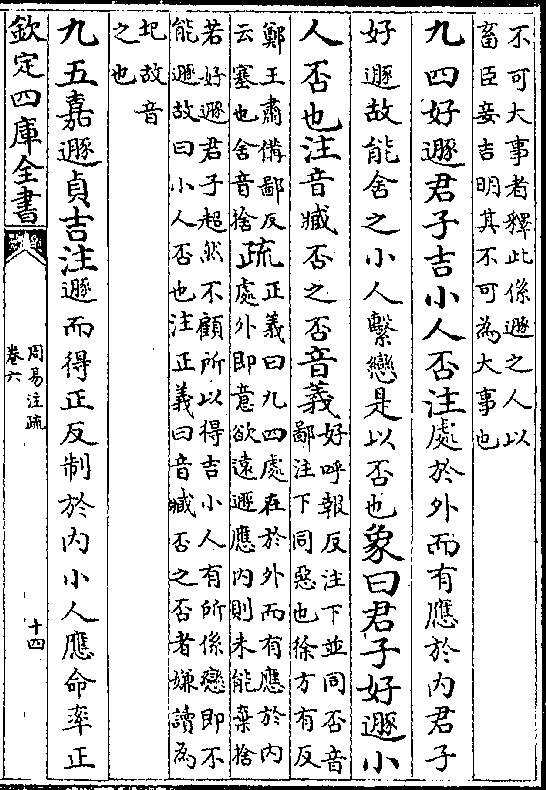 不可大事者釋此係遯之人以
畜臣妾吉明其不可為大事也
九四好遯君子吉小人否注處於外而有應於内君子
好遯故能舍之小人繫戀是以否也象曰君子好遯小
人否也注音臧否之否音義好呼報反注下並同否音
鄙注下同惡也徐方有反
鄭王肅備鄙反
云塞也舍音捨疏正義曰九四處在於外而有應於内
處外即意欲遠遯應内則未能棄捨
若好遯君子超然不顧所以得吉小人有所係戀即不
能遯故曰小人否也注正義曰音臧否之否者嫌讀為
圯故音
之也
九五嘉遯貞吉注遯而得正反制於内小人應命率正
欽定四庫全書
周易注疏
卷六
十四